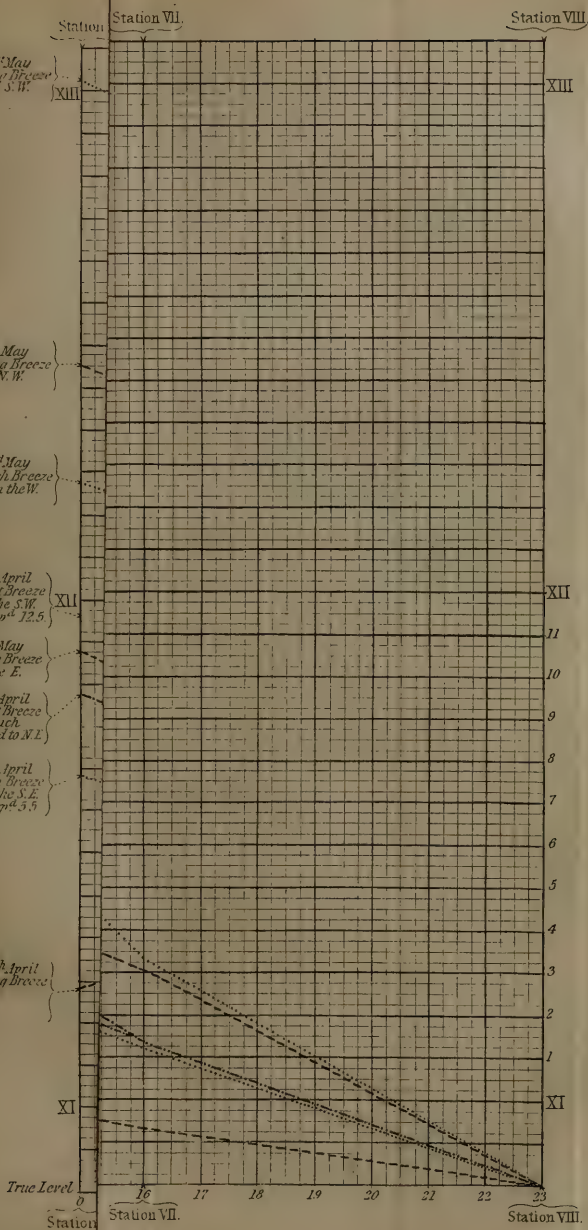 Station Station VII. Station VIII
May
Breeze
S.W.
XIII XIII
May
a Breeze
N.W.
May
h Breeze
the W.
April
Breeze
S.W.
12.5.
XII XII
11
May
Breeze
E.
10
April
Breeze
9
d to N.E
8
April
Breeze
the S.E.
5.5
7
6
5
4
3
April
Breeze
2
1
XI XI
True Level
0 16 17 18 19 20 21 22 23
Station Station VII. Station VIII.